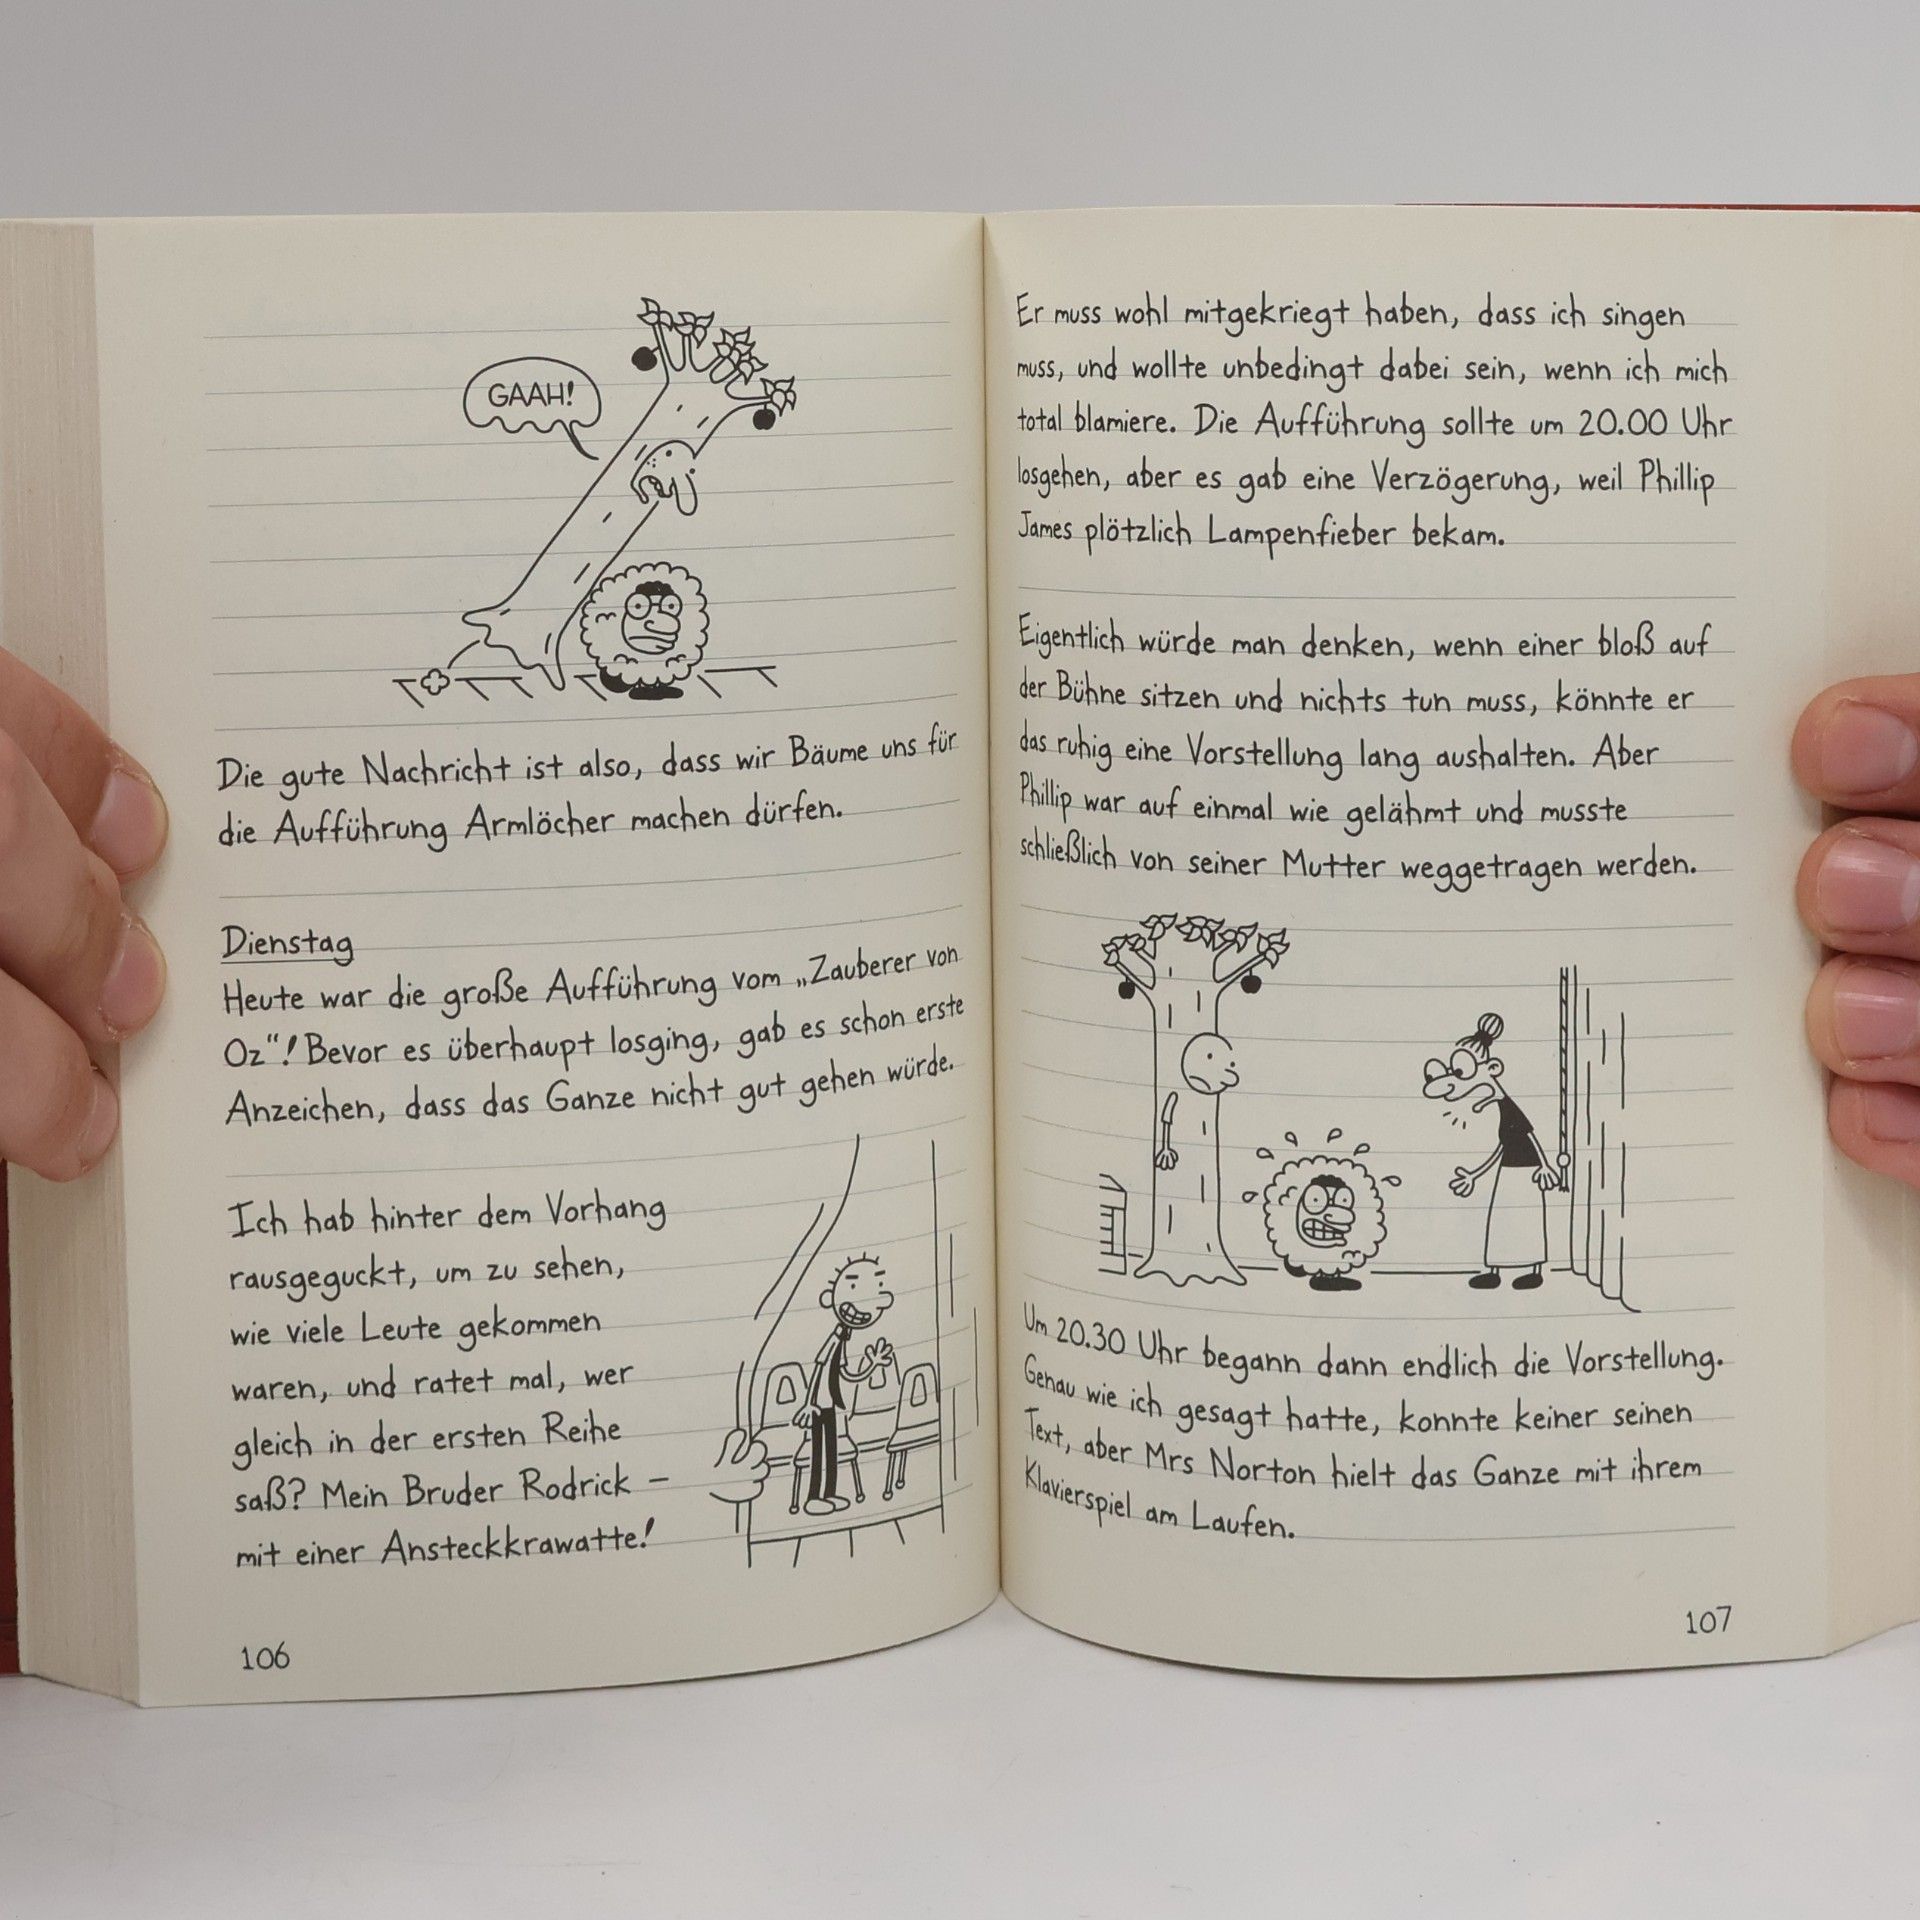 GAAH!
Die gute Nachricht ist also, dass wir Bäume uns für
die Aufführung Armlöcher machen dürfen.
Dienstag
Heute war die große Aufführung vom „Zauberer von
Oz“! Bevor es überhaupt losging, gab es schon erste
Anzeichen, dass das Ganze nicht gut gehen würde.
Ich hab hinter dem Vorhang
rausgeguckt, um zu sehen,
wie viele Leute gekommen
waren, und ratet mal, wer
gleich in der ersten Reihe
saß? Mein Bruder Rodrick –
mit einer Ansteckkrawatte!
106
Er muss wohl mitgekriegt haben, dass ich singen
muss, und wollte unbedingt dabei sein, wenn ich mich
total blamiere. Die Aufführung sollte um 20.00 Uhr
losgehen, aber es gab eine Verzögerung, weil Phillip
James plötzlich Lampenfieber bekam.
Eigentlich würde man denken, wenn einer bloß auf
der Bühne sitzen und nichts tun muss, könnte er
das ruhig eine Vorstellung lang aushalten. Aber
Phillip war auf einmal wie gelähmt und musste
schließlich von seiner Mutter weggetragen werden.
Um 20.30 Uhr begann dann endlich die Vorstellung.
Genau wie ich gesagt hatte, konnte keiner seinen
Text, aber Mrs Norton hielt das Ganze mit ihrem
Klavierspiel am Laufen.
107